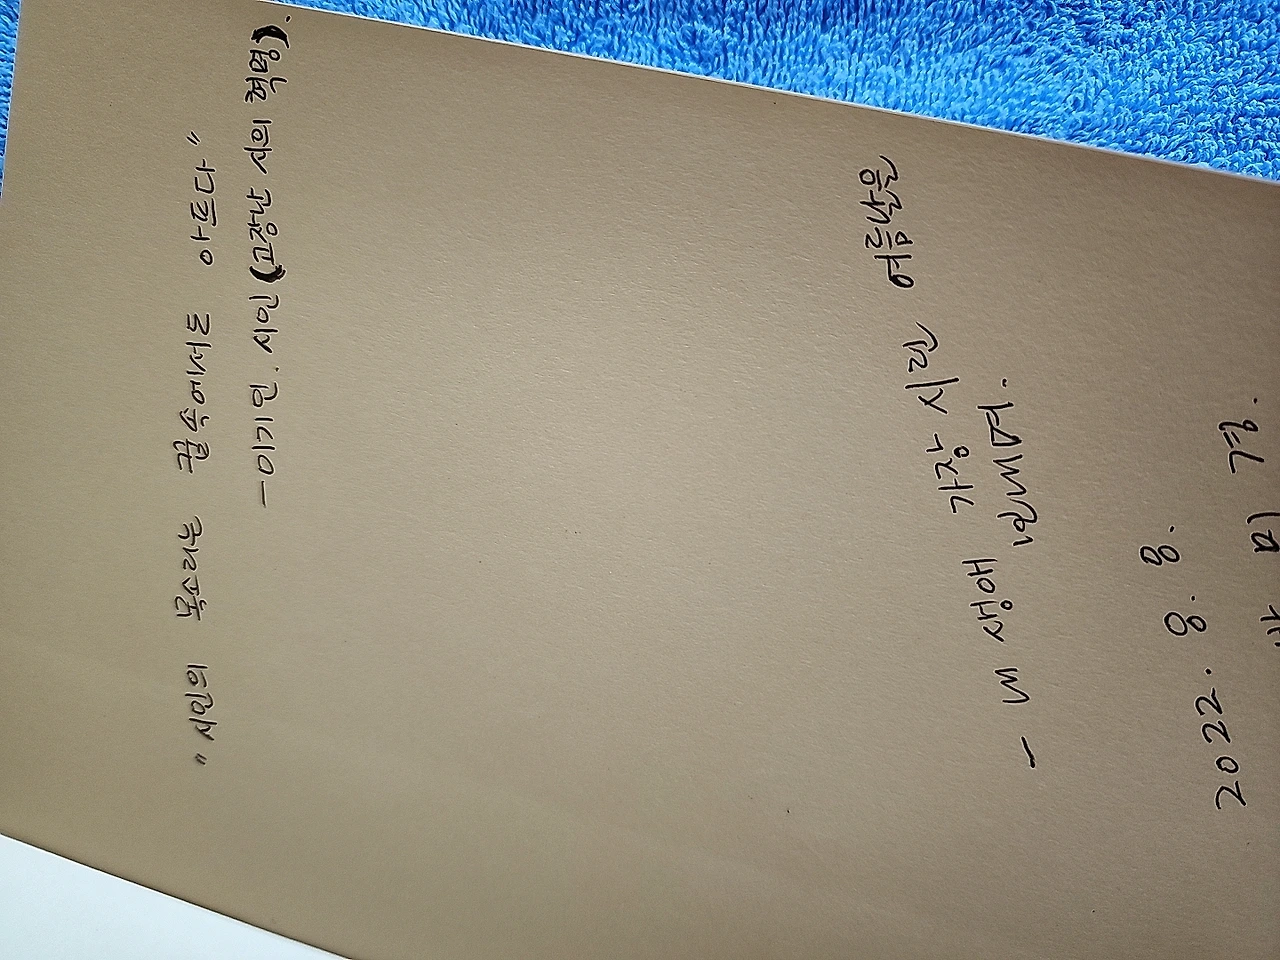 "시인의 목소리는 꿈속에서도 아프다"
-이기인. 시인 (고장난 시의 혁명).
- 내 생애 가장 시린 여름날을
보내며.
2022. 8. 8.
박 미 경.